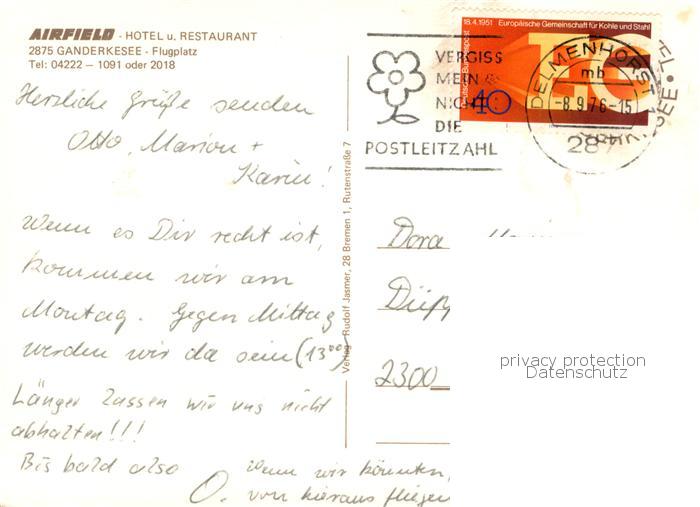 AIRFIELD - HOTEL u. RESTAURANT
2875 GANDERKESEE - Flugplatz
Tel: 04222 – 1091 oder 2018
Herzliche Grüße senden
Otto, Marion +
Karin!
Wenn es Dir recht ist,
kommen wir am
Montag. Gegen Mittag
werden wir da sein (13⁰⁰)
Länger lassen wir uns nicht
abhalten!!!
Bis bald also
O.
Wenn wir könnten,
von hieraus fliegen
Verlag Rudolf Jasmer, 28 Bremen 1, Rutenstraße 7
VERGISS
MEIN
NICHT
DIE
POSTLEITZAHL
18.4.1951 Europäische Gemeinschaft für Kohle und Stahl
Deutsche Bundespost
40
DELMENHORST 1
mb
-8.9.76-15
287
Dora
2300
privacy protection
Datenschutz